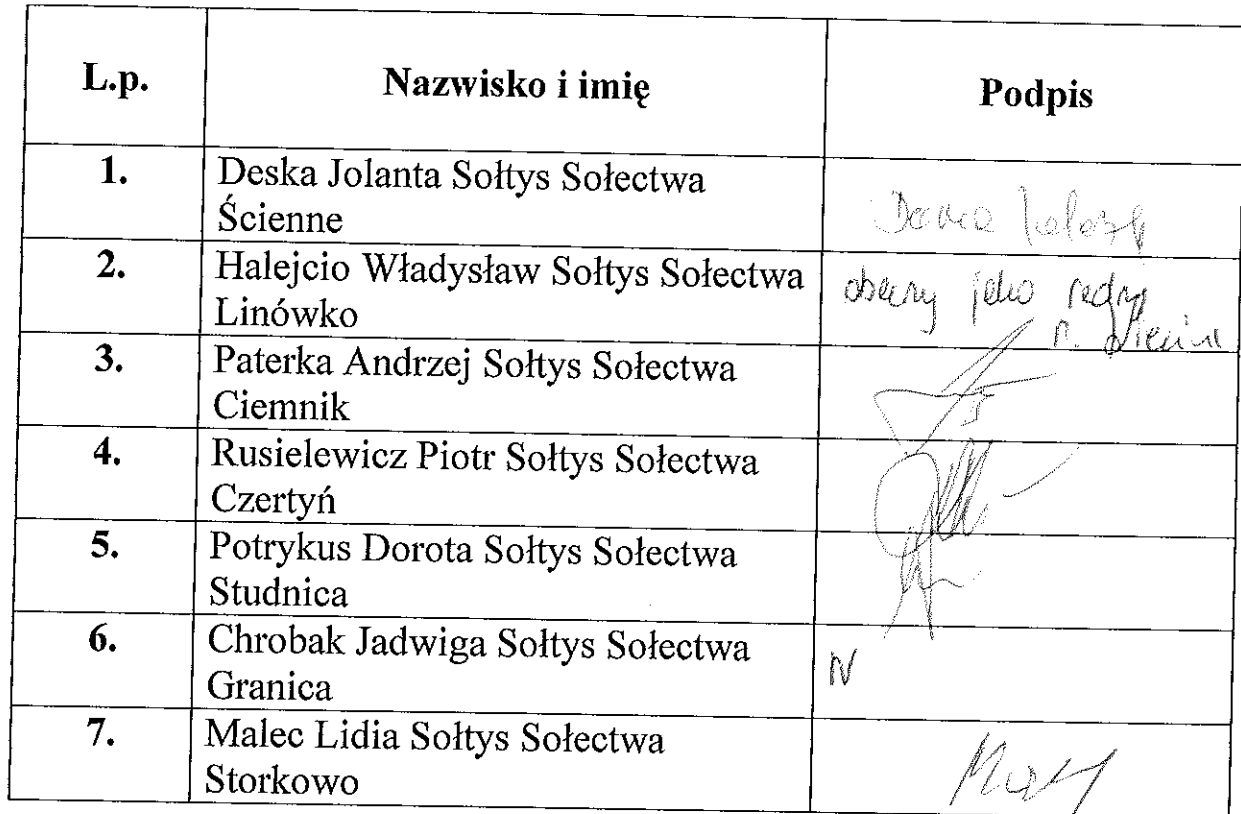 L.p.
Nazwisko i imię
Podpis
1.
Deska Jolanta Sołtys Sołectwa
Ścienne
2.
Halejcio Władysław Sołtys Sołectwa
Linówko
obecny jako radny
3.
Paterka Andrzej Sołtys Sołectwa
Ciemnik
4.
Rusielewicz Piotr Sołtys Sołectwa
Czertyń
5.
Potrykus Dorota Sołtys Sołectwa
Studnica
6.
Chrobak Jadwiga Sołtys Sołectwa
Granica
N
7.
Malec Lidia Sołtys Sołectwa
Storkowo